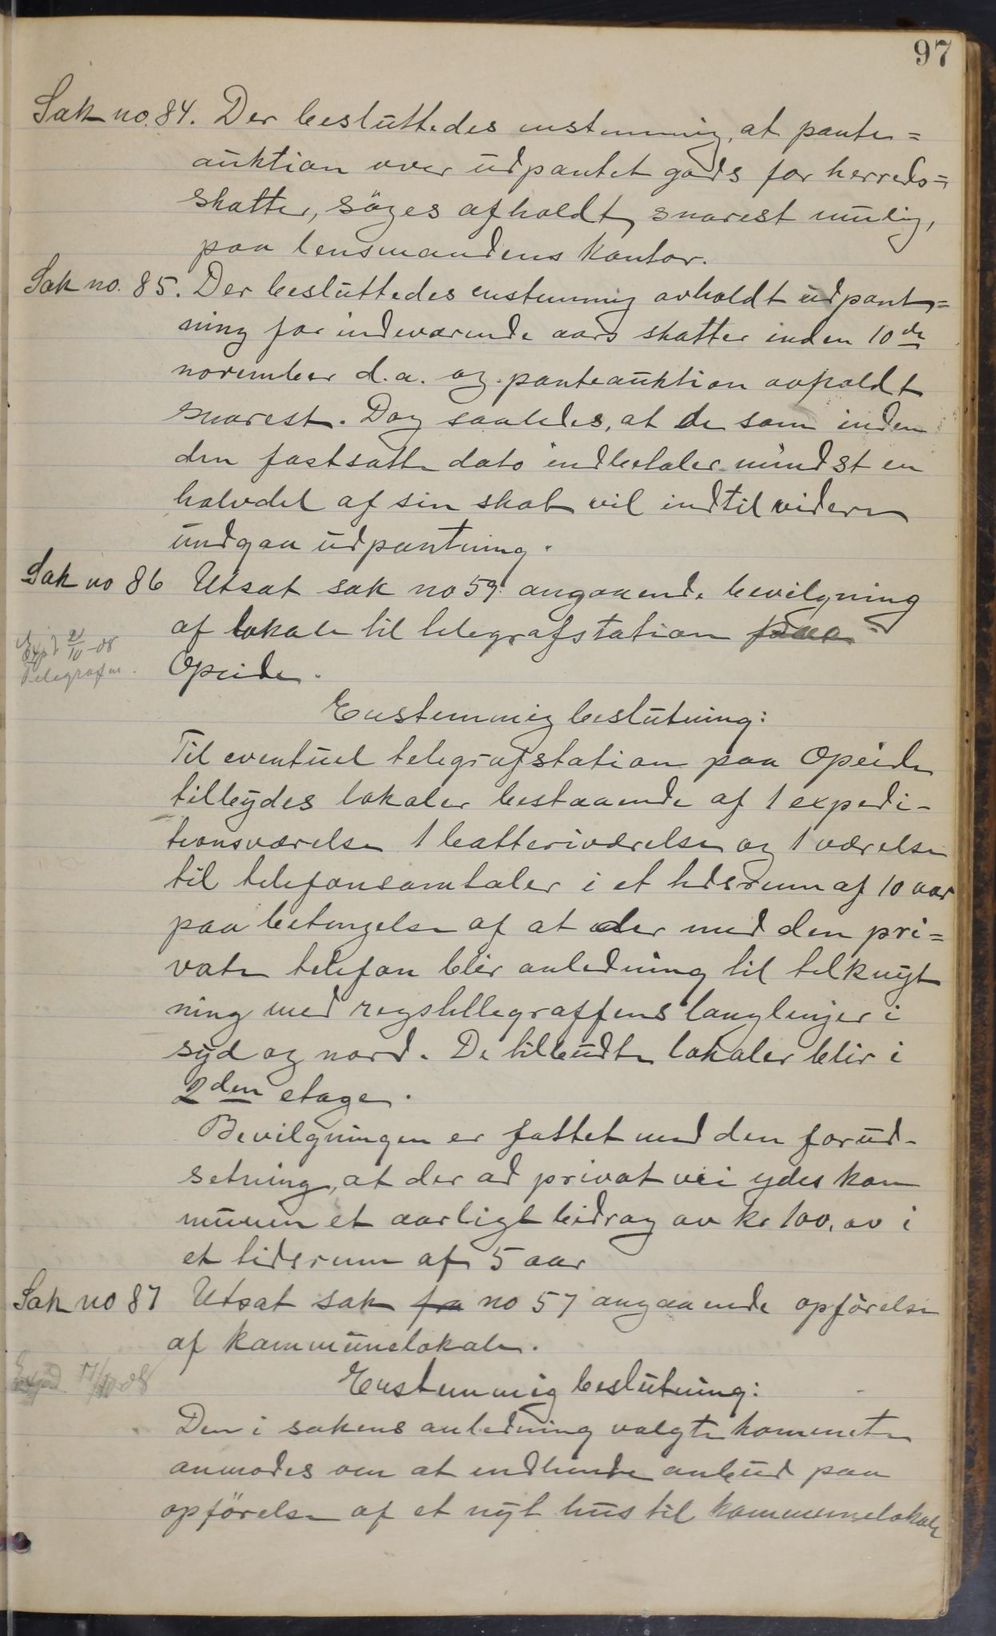 97
Sak no. 84. Der besluttedes enstemmig, at pante=
auktion over udpantet gods for herreds=
skatter, söges afholdt, snarest mulig,
paa lensmandens kontor.
Sak no. 85. Der besluttedes enstemmig avholdt udpant=
ning for indeværende aars skatter inden 10de
november d.a. og panteauktion avholdt
snarest. Dog saaledes, at de som inden
den fastsatte dato indbetaler mindst en
halvdel af sin skat vil indtil videre
undgaa udpantning.
Sak no 86 Utsat sak no 59 angaaende bevilgning
af lokale til telegrafstation paa
Exp 21/10-08
Telegrafin.
Opeide.
Enstemmig beslutning:
Til eventuel telegrafstation paa Opeide
tilbydes lokaler bestaaende af 1 expedi-
tionsværelse 1 batteriværelse og 1 værelse
til telefonsamtaler i et tidsrum af 10 aar
paa betingelse af at der med den pri=
vate telefon blir anledning til tilknyt
ning med regstellegraffens langlinjer i
syd og nord. De tilbudte lokaler blir i
2den etage.
Bevilgningen er fattet med den forud-
setning, at der ad privat vei ydes kom
munen et aarligt bidrag av kr 100,00 i
et tidsrum af 5 aar
Sak no 87 Utsat sak fra no 57 angaaende opförelse
af kommunelokale.
Exped. 17/10-08
Enstemmig beslutning:
Den i sakens anledning valgte kommete
anmodes om at indhente anbud paa
opförelse af et nyt hus til kommunelokale